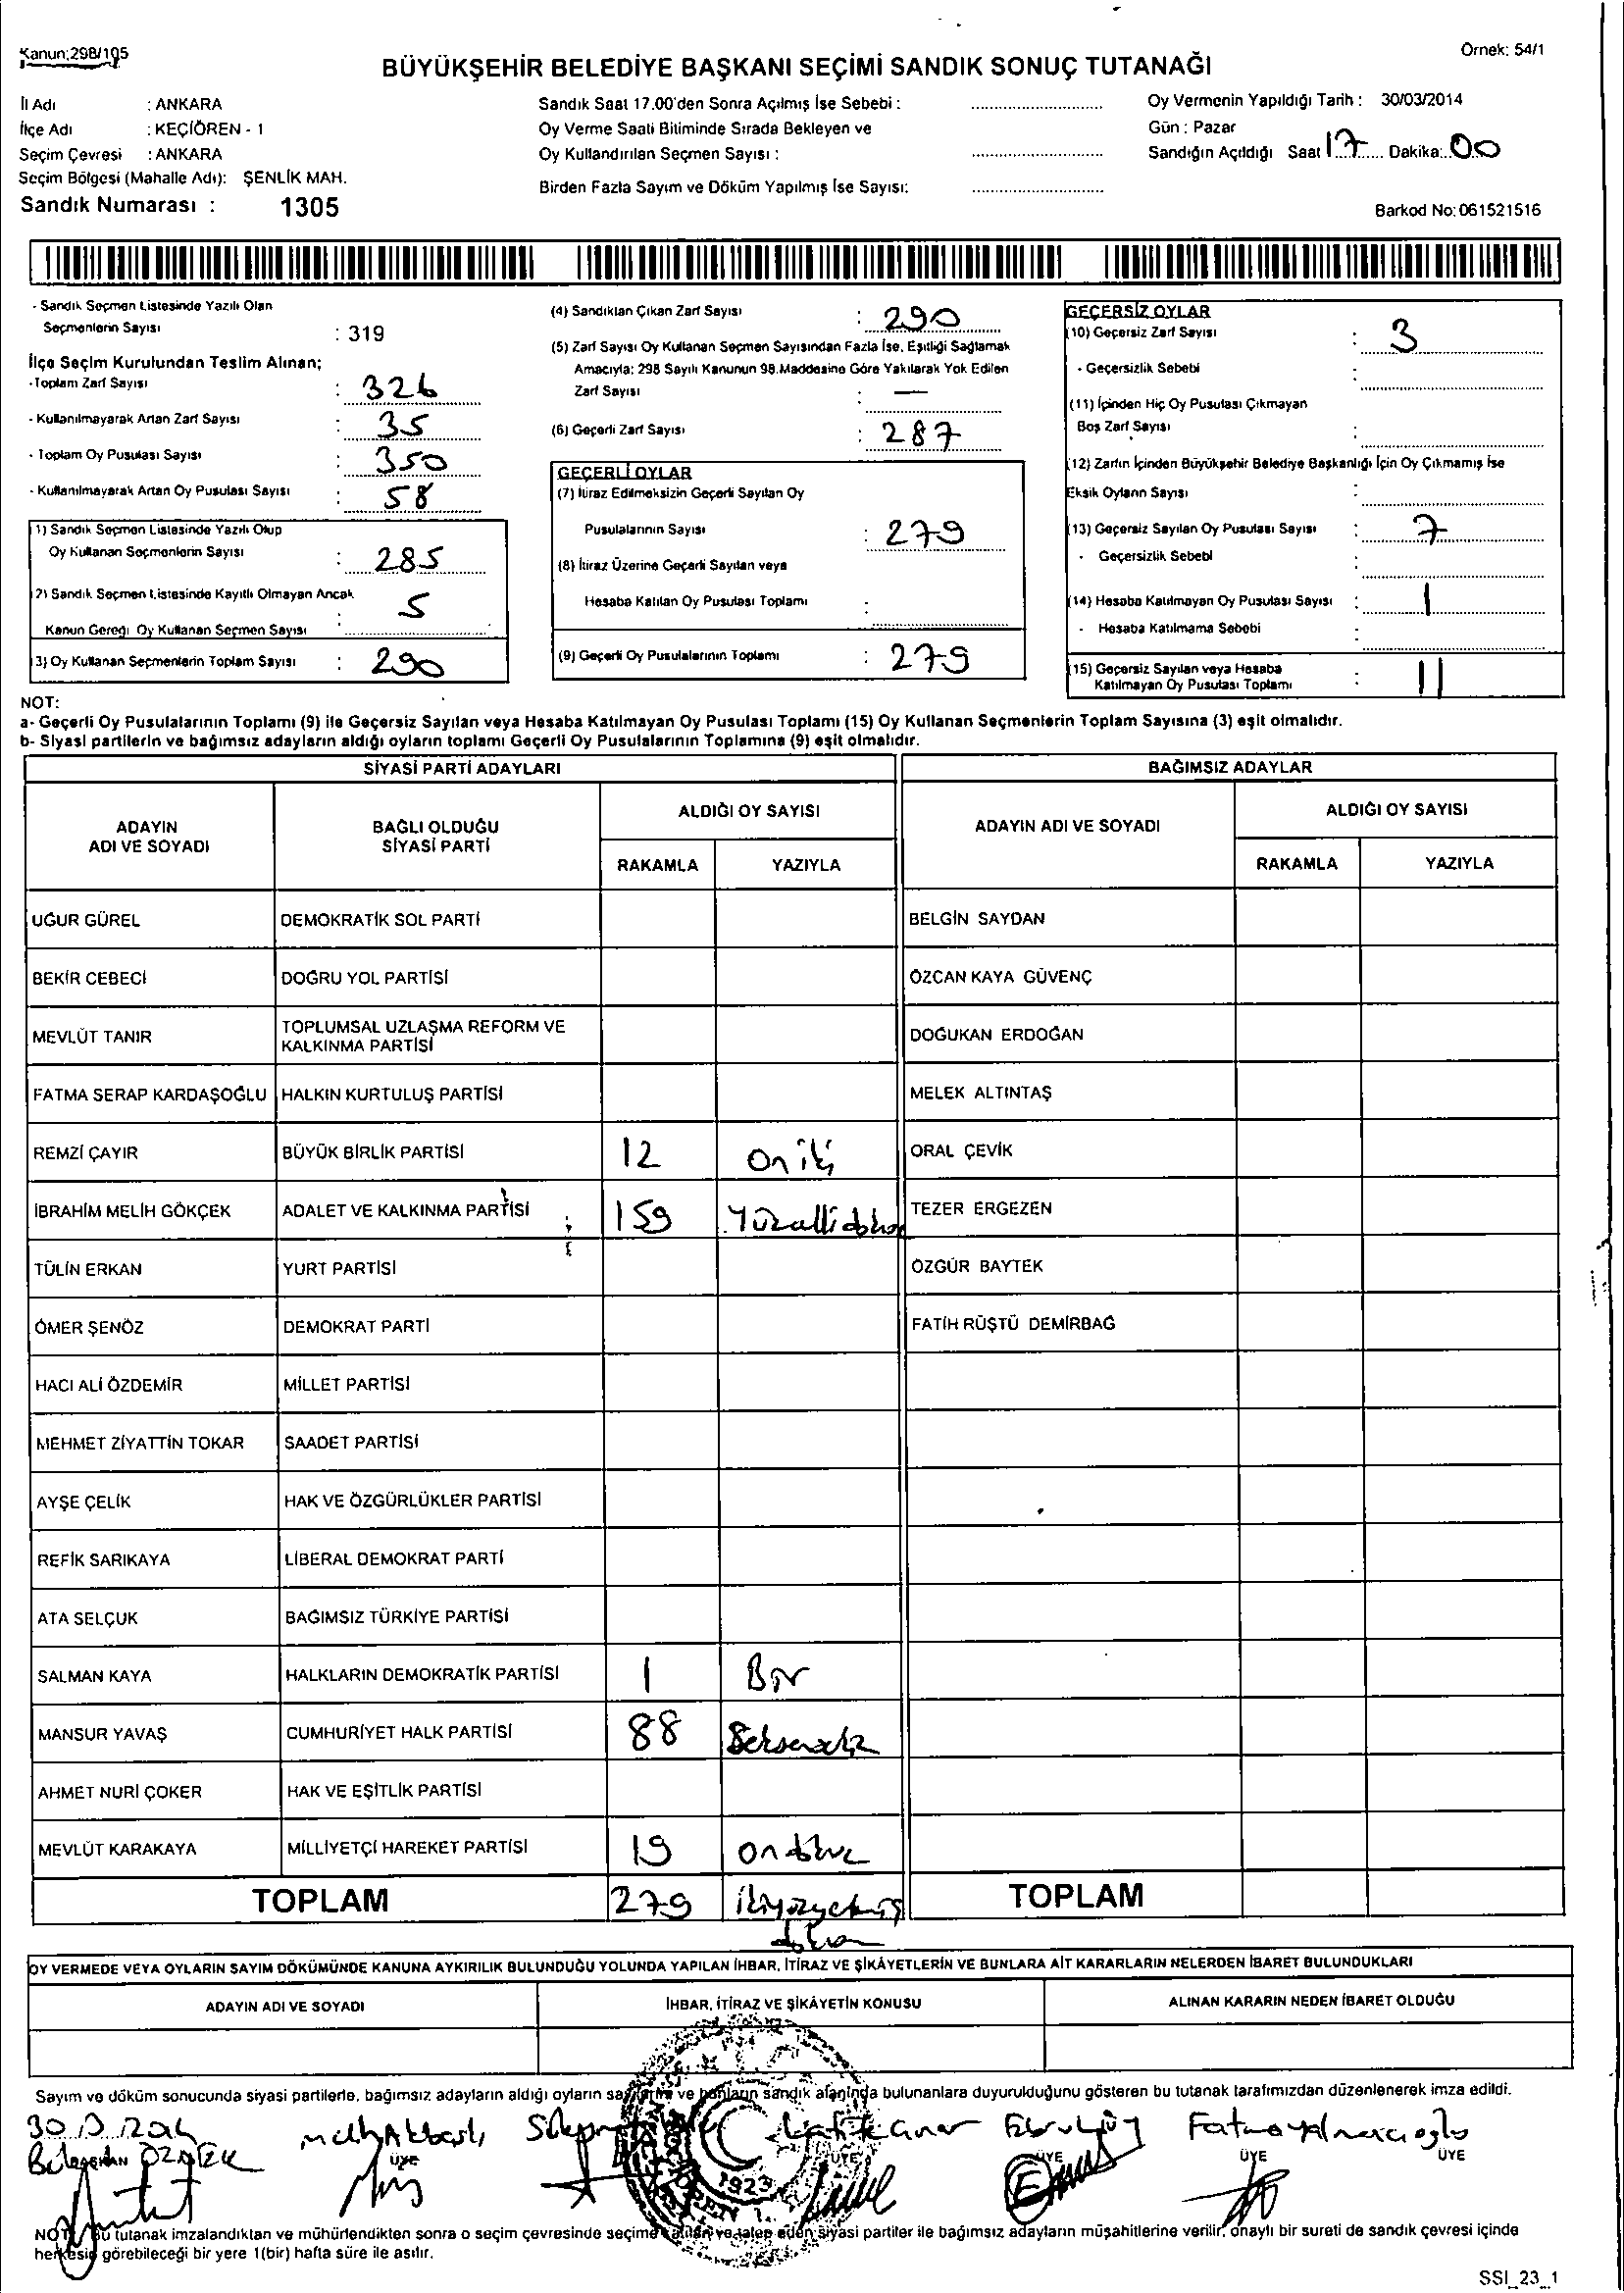 Kanun:298/105
Örnek: 54/1
BÜYÜKŞEHİR BELEDİYE BAŞKANI SEÇİMİ SANDIK SONUÇ TUTANAĞI
İl Adı : ANKARA
İlçe Adı : KEÇİÖREN - 1
Seçim Çevresi : ANKARA
Seçim Bölgesi (Mahalle Adı): ŞENLİK MAH.
Sandık Numarası : 1305
Sandık Saat 17.00'den Sonra Açılmış İse Sebebi :
Oy Verme Saati Bitiminde Sırada Bekleyen ve
Oy Kullandırılan Seçmen Sayısı :
Birden Fazla Sayım ve Döküm Yapılmış İse Sayısı:
Oy Vermenin Yapıldığı Tarih : 30/03/2014
Gün : Pazar
Sandığın Açıldığı Saat 17 Dakika: 00
Barkod No: 061521516
- Sandık Seçmen Listesinde Yazılı Olan
Seçmenlerin Sayısı : 319
İlçe Seçim Kurulundan Teslim Alınan;
- Toplam Zarf Sayısı : 326
- Kullanılmayarak Artan Zarf Sayısı : 35
- Toplam Oy Pusulası Sayısı : 350
- Kullanılmayarak Artan Oy Pusulası Sayısı : 58
1) Sandık Seçmen Listesinde Yazılı Olup
Oy Kullanan Seçmenlerin Sayısı : 285
2) Sandık Seçmen Listesinde Kayıtlı Olmayan Ancak
Kanun Gereği Oy Kullanan Seçmen Sayısı : 5
(3) Oy Kullanan Seçmenlerin Toplam Sayısı : 290
(4) Sandıktan Çıkan Zarf Sayısı : 290
(5) Zarf Sayısı Oy Kullanan Seçmen Sayısından Fazla İse, Eşitliği Sağlamak
Amacıyla; 298 Sayılı Kanunun 98.Maddesine Göre Yakılarak Yok Edilen
Zarf Sayısı : —
(6) Geçerli Zarf Sayısı : 287
GEÇERLİ OYLAR
(7) İtiraz Edilmeksizin Geçerli Sayılan Oy
Pusulalarının Sayısı : 279
(8) İtiraz Üzerine Geçerli Sayılan veya
Hesaba Katılan Oy Pusulası Toplamı :
(9) Geçerli Oy Pusulalarının Toplamı : 279
GEÇERSİZ OYLAR
(10) Geçersiz Zarf Sayısı : 3
- Geçersizlik Sebebi :
(11) İçinden Hiç Oy Pusulası Çıkmayan
Boş Zarf Sayısı :
(12) Zarfın İçinden Büyükşehir Belediye Başkanlığı İçin Oy Çıkmamış İse
Eksik Oyların Sayısı :
(13) Geçersiz Sayılan Oy Pusulası Sayısı : 7
- Geçersizlik Sebebi :
(14) Hesaba Katılmayan Oy Pusulası Sayısı : 1
- Hesaba Katılmama Sebebi :
(15) Geçersiz Sayılan veya Hesaba
Katılmayan Oy Pusulası Toplamı : 11
NOT:
a- Geçerli Oy Pusulalarının Toplamı (9) ile Geçersiz Sayılan veya Hesaba Katılmayan Oy Pusulası Toplamı (15) Oy Kullanan Seçmenlerin Toplam Sayısına (3) eşit olmalıdır.
b- Siyasi partilerin ve bağımsız adayların aldığı oyların toplamı Geçerli Oy Pusulalarının Toplamına (9) eşit olmalıdır.
SİYASİ PARTİ ADAYLARI BAĞIMSIZ ADAYLAR
ADAYIN ADI VE SOYADI BAĞLI OLDUĞU SİYASİ PARTİ ALDIĞI OY SAYISI ADAYIN ADI VE SOYADI ALDIĞI OY SAYISI
RAKAMLA YAZIYLA RAKAMLA YAZIYLA
UĞUR GÜREL DEMOKRATİK SOL PARTİ BELGİN SAYDAN
BEKİR CEBECİ DOĞRU YOL PARTİSİ ÖZCAN KAYA GÜVENÇ
MEVLÜT TANIR TOPLUMSAL UZLAŞMA REFORM VE KALKINMA PARTİSİ DOĞUKAN ERDOĞAN
FATMA SERAP KARDAŞOĞLU HALKIN KURTULUŞ PARTİSİ MELEK ALTINTAŞ
REMZİ ÇAYIR BÜYÜK BİRLİK PARTİSİ 12 On iki ORAL ÇEVİK
İBRAHİM MELİH GÖKÇEK ADALET VE KALKINMA PARTİSİ 159 Yüzellidokuz TEZER ERGEZEN
TÜLİN ERKAN YURT PARTİSİ ÖZGÜR BAYTEK
ÖMER ŞENÖZ DEMOKRAT PARTİ FATİH RÜŞTÜ DEMİRBAĞ
HACI ALİ ÖZDEMİR MİLLET PARTİSİ
MEHMET ZİYATTİN TOKAR SAADET PARTİSİ
AYŞE ÇELİK HAK VE ÖZGÜRLÜKLER PARTİSİ
REFİK SARIKAYA LİBERAL DEMOKRAT PARTİ
ATA SELÇUK BAĞIMSIZ TÜRKİYE PARTİSİ
SALMAN KAYA HALKLARIN DEMOKRATİK PARTİSİ 1 Bir
MANSUR YAVAŞ CUMHURİYET HALK PARTİSİ 88 Seksensekiz
AHMET NURİ ÇOKER HAK VE EŞİTLİK PARTİSİ
MEVLÜT KARAKAYA MİLLİYETÇİ HAREKET PARTİSİ 19 ondokuz
TOPLAM 279 ikiyüzyetmiş TOPLAM
dokuz
OY VERMEDE VEYA OYLARIN SAYIM DÖKÜMÜNDE KANUNA AYKIRILIK BULUNDUĞU YOLUNDA YAPILAN İHBAR, İTİRAZ VE ŞİKÂYETLERİN VE BUNLARA AİT KARARLARIN NELERDEN İBARET BULUNDUKLARI
ADAYIN ADI VE SOYADI İHBAR, İTİRAZ VE ŞİKÂYETİN KONUSU ALINAN KARARIN NEDEN İBARET OLDUĞU
Sayım ve döküm sonucunda siyasi partilerle, bağımsız adayların aldığı oyların sayılarını ve bunların sandık alanında bulunanlara duyurulduğunu gösteren bu tutanak tarafımızdan düzenlenerek imza edildi.
BAŞKAN ÜYE ÜYE ÜYE ÜYE ÜYE
1923
NOT: Bu tutanak imzalandıktan ve mühürlendikten sonra o seçim çevresinde seçime katılan ve talep eden siyasi partiler ile bağımsız adayların müşahitlerine verilir, onaylı bir sureti de sandık çevresi içinde
herkesin görebileceği bir yere 1(bir) hafta süre ile asılır.
SSI_23_1